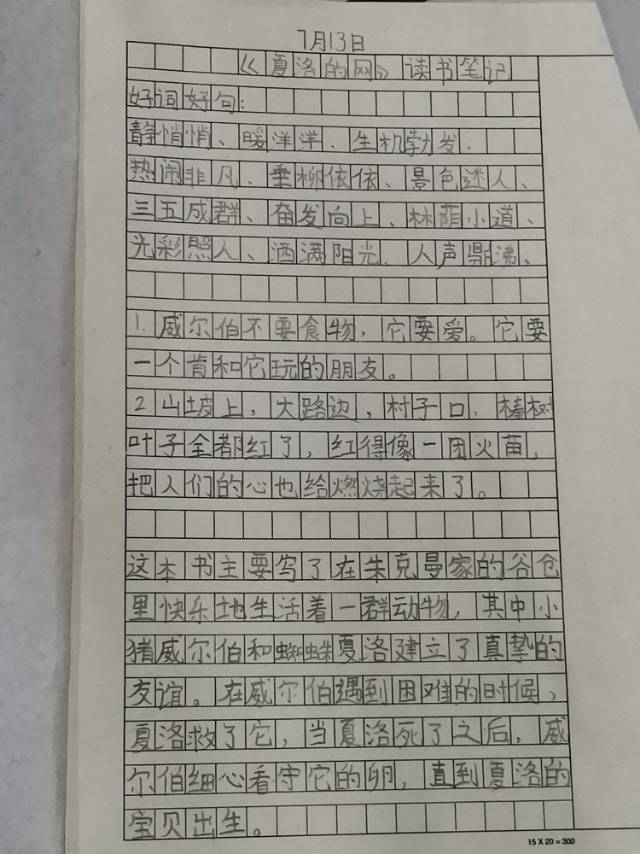 7月13日
《夏洛的网》读书笔记
好词好句:
静悄悄、暖洋洋、生机勃发.
热闹非凡、垂柳依依、景色迷人、
三五成群、奋发向上、林荫小道、
光彩照人、洒满阳光、人声鼎沸、
1. 威尔伯不要食物，它要爱。它要
一个肯和它玩的朋友。
2 山坡上，大路边，村子口，榛树
叶子全都红了，红得像一团火苗，
把人们的心也给燃烧起来了。
这本书主要写了在朱克曼家的谷仓
里快乐地生活着一群动物，其中小
猪威尔伯和蜘蛛夏洛建立了真挚的
友谊。在威尔伯遇到困难的时候，
夏洛救了它，当夏洛死了之后，威
尔伯细心看守它的卵，直到夏洛的
宝贝出生。
15 X 20 = 300